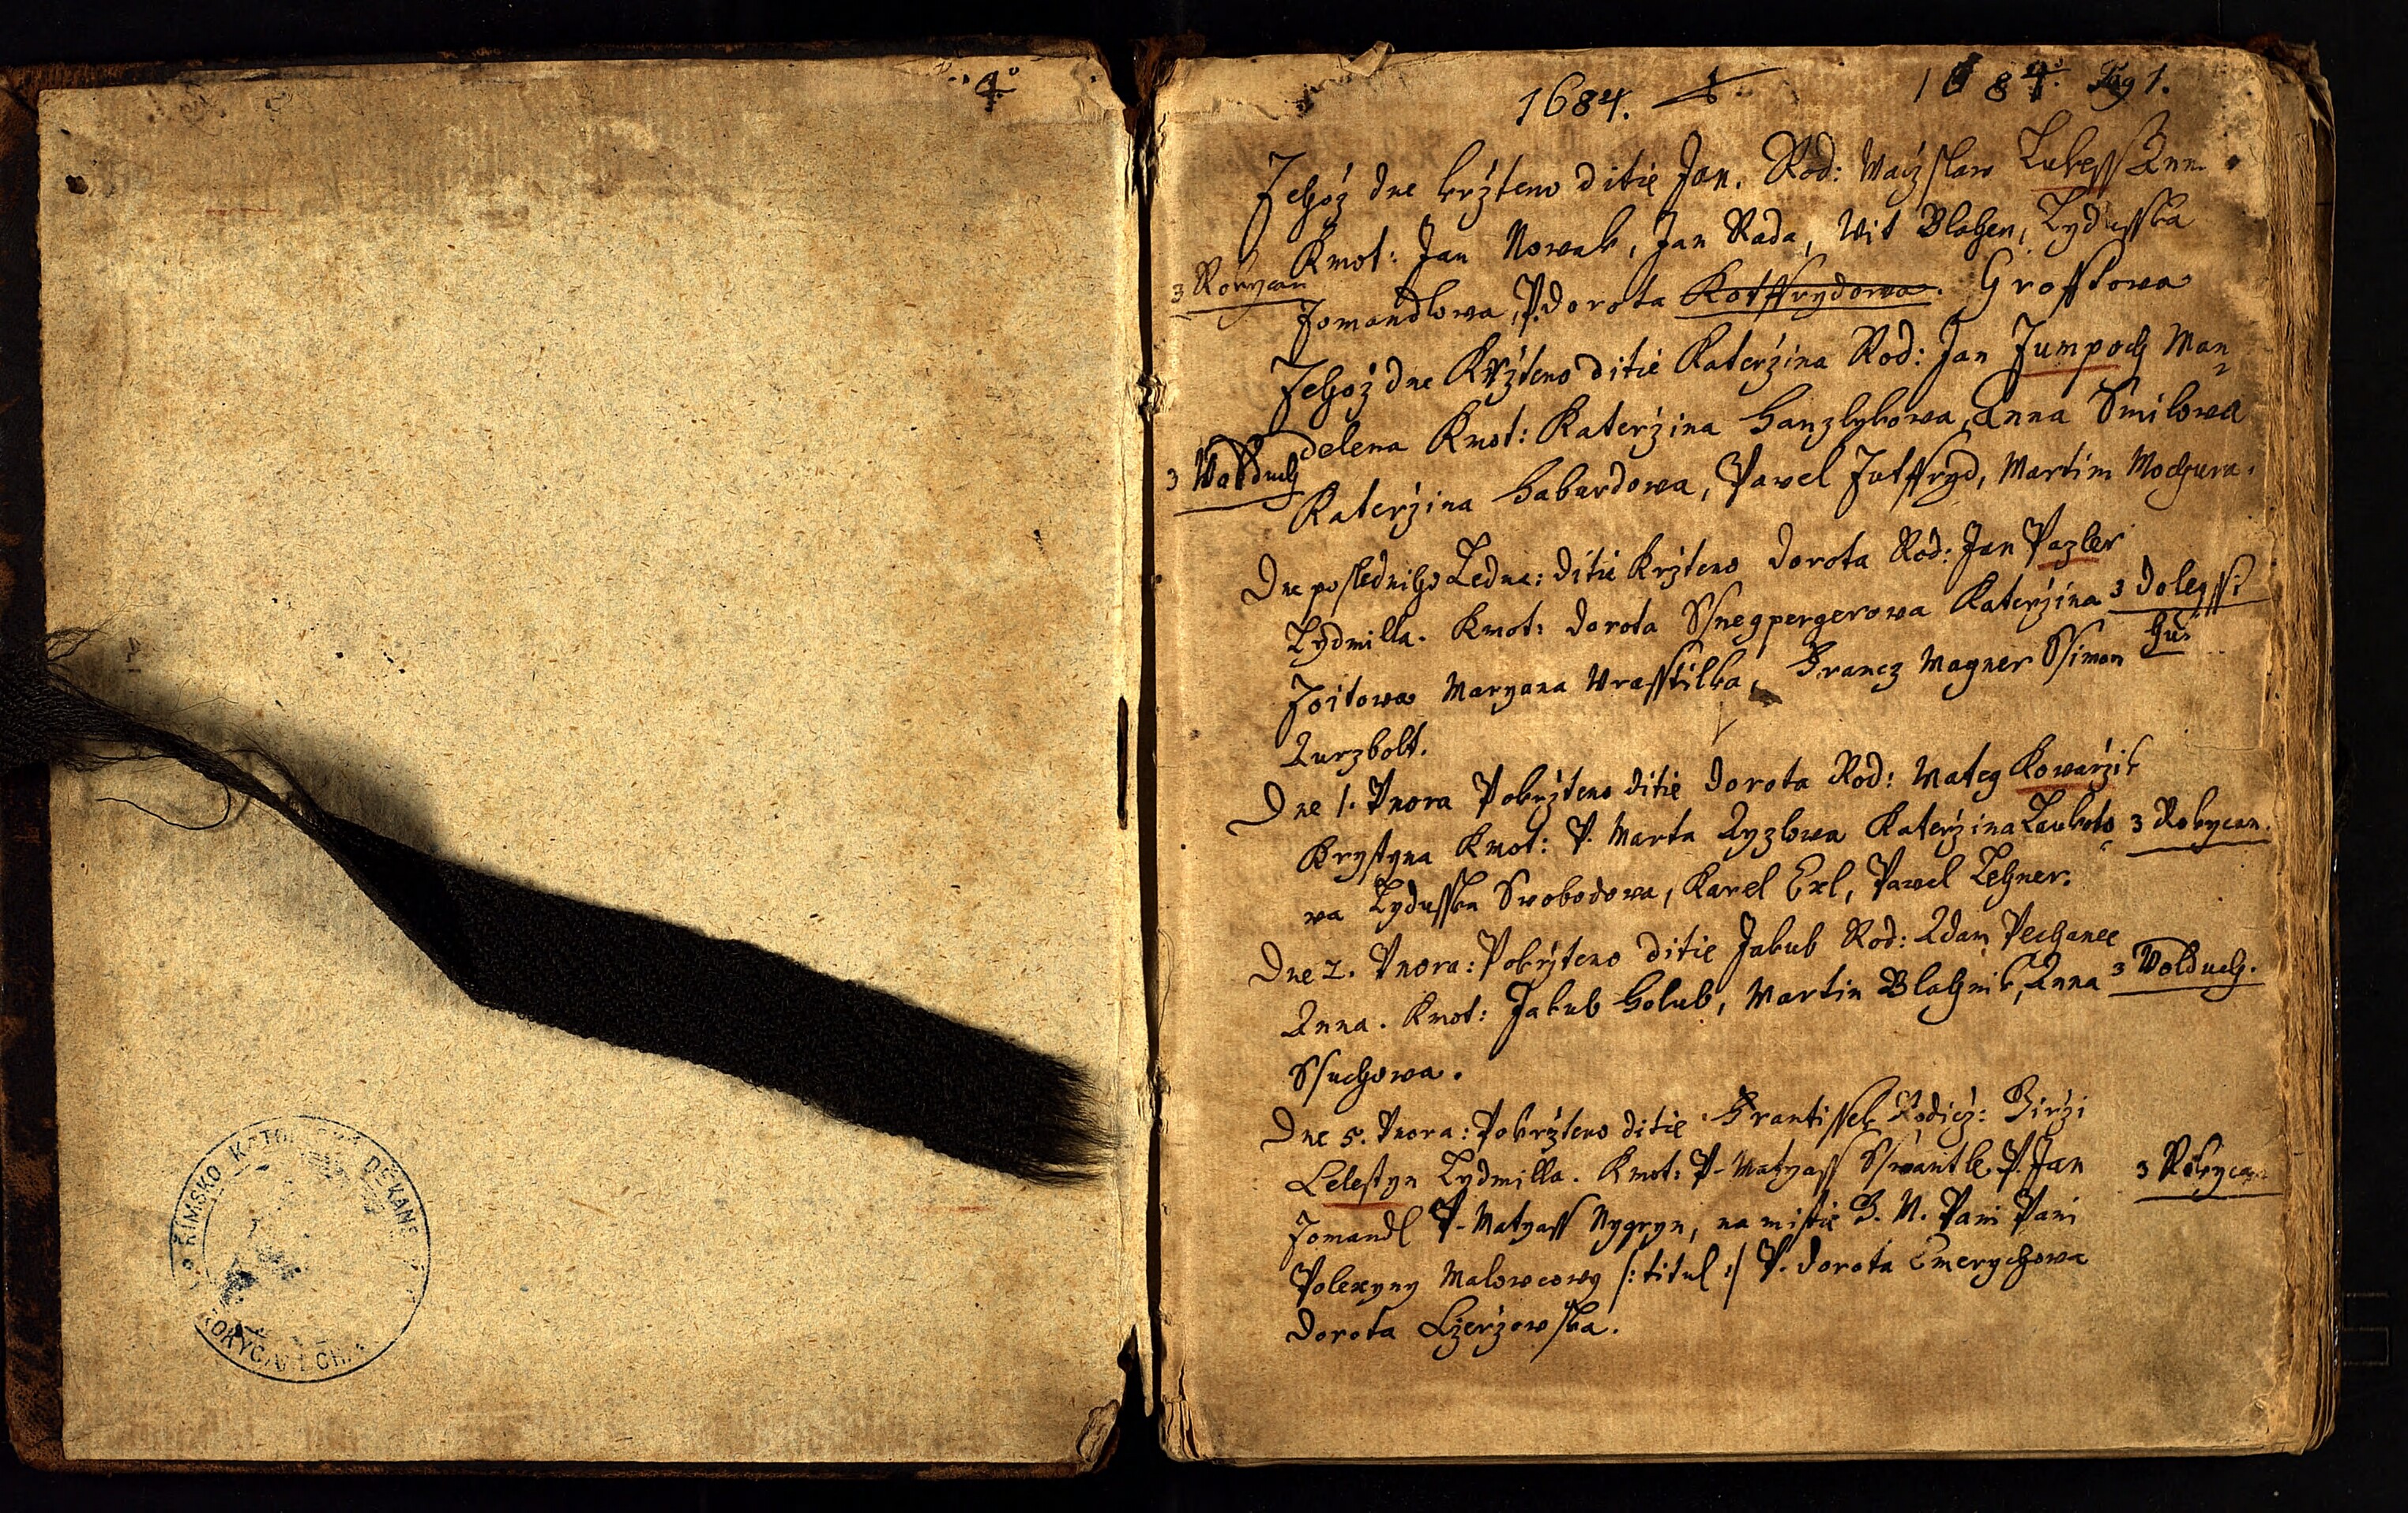 4
ŘÍMSKO KATOL DĚKANS
ROKYCANECH
1684. 1684. Pag 1.
Tehoż dne krżteno ditie Jan. Rod: Waczslaw Lukess Anna
Kmot: Jan Nowak, Jan Rada, Wit Blahen, Lydusska
z Rokycan
Jomandlowa, P. Dorota Kotffrydowa. Grosslowa
Tehoż dne Krżteno ditie Katerżina Rod: Jan Jumpoch Man
delena Kmot: Katerżina Hanzlykowa, Anna Smilowa
z Wolduch
Katerżina Habardowa, Pawel Jutffryd, Martin Mochura.
Dne posledniho Ledna: Ditie Krżteno Dorota Rod: Jan Pazler
Lydmilla. Kmot: Dorota Ssnegpergerowa Katerżina z Dolegssi
Joitowa Maryana Wrasstilka, Francz Wagner Ssimon Hu:
Kurzbolt.
Dne 1. Vnora Pokrżteno ditie Dorota Rod: Mateg Kowarżik
Krystyna Kmot: P. Marta Ryzlowa Katerżina Laukoto z Rokycan.
wa Lydusska Swobodowa, Karel Exl, Pawel Lehner.
Dne 2. Vnora: Pokrżteno ditie Jakub Rod: Adam Pechanec
Anna. Kmot: Jakub Holub, Martin Blahnik, Anna z Wolduch.
Ssuchowa.
Dne 5. Vnora: Pokrżteno ditie Frantissek Rodicż: Girżi
Celestyn Lydmilla. Kmot: P. Matyass Sswantle. P. Jan z Rokycan
Jomandl P. Matyass Nygryn, na mistie G. M. Pani Pani
Polexyny Malowcowy /: titul :/ P. Dorota Emerychowa
Dorota Cżerżowska.